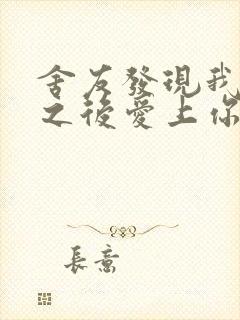 舍友發現我
之後愛上你
長意